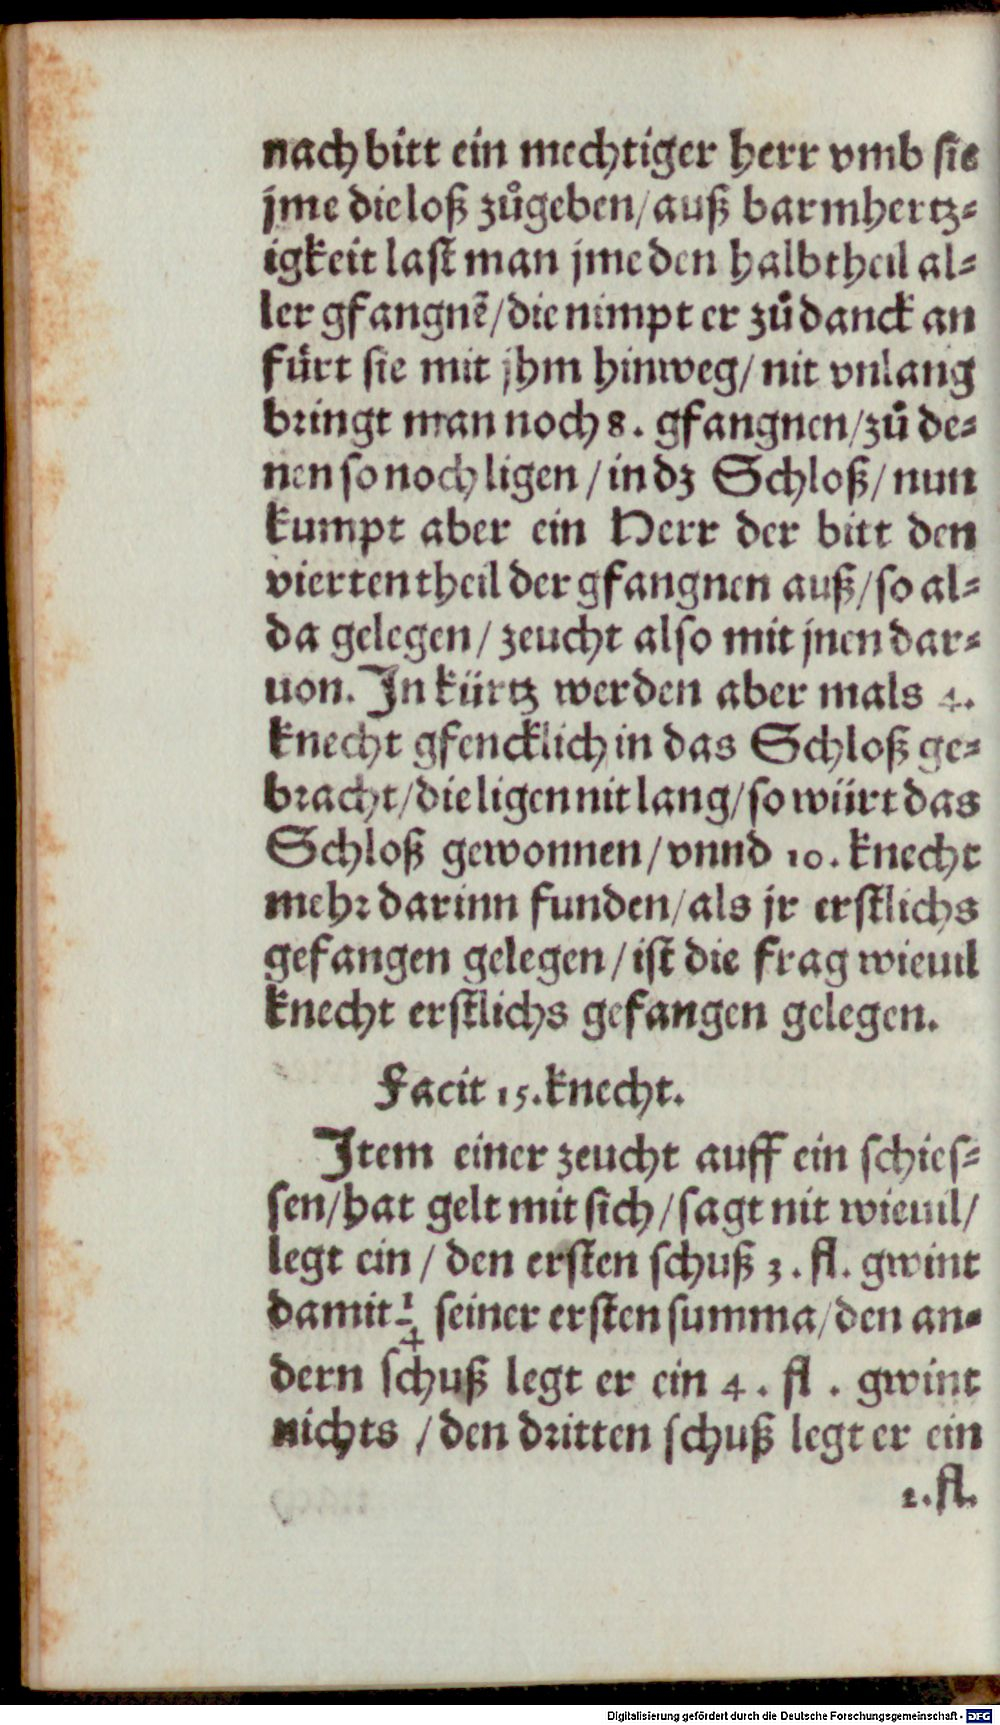 nach bitt ein mechtiger herr vmb sie
jme die loß zůgeben/auß barmhertz-
igkeit last man jme den halbtheil al-
ler gfangnẽ/die nimpt er zů danck an
fürt sie mit jhm hinweg/ nit vnlang
bringt man noch 8. gfangnen/zů de-
nen so noch ligen/in dz Schloß/ nun
kumpt aber ein Herr der bitt den
vierten theil der gfangnen auß/so al-
da gelegen/ zeucht also mit jnen dar-
uon. In kürtz werden aber mals 4.
knecht gfencklich in das Schloß ge-
bracht/die ligen nit lang/so würt das
Schloß gewonnen/vnnd 10. knecht
mehr darinn funden/als jr erstlichs
gefangen gelegen/ist die frag wieuil
knecht erstlichs gefangen gelegen.
Facit 15.knecht.
Item einer zeucht auff ein schies-
sen/hat gelt mit sich/sagt nit wieuil/
legt ein/den ersten schuß 3. fl. gwint
damit 1/4 seiner ersten summa/den an-
dern schuß legt er ein 4. fl. gwint
nichts /den dritten schuß legt er ein
2.fl.
Digitalisierung gefördert durch die Deutsche Forschungsgemeinschaft - DFG